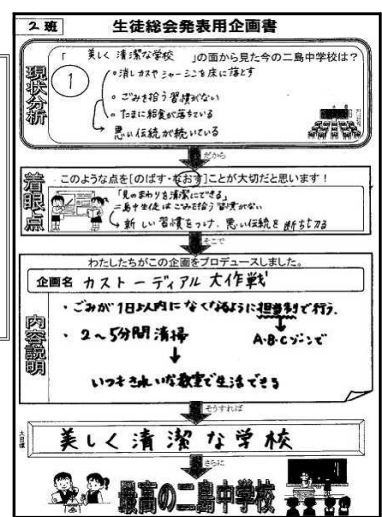 2班
生徒総会発表用企画書
「 美しく清潔な学校 」の面から見た今の二島中学校は?
現状分析
1
・消しカスやシャーシンを床に落とす
・ごみを拾う習慣がない
・たまに給食が落ちている
悪い伝統が続いている
だから
着眼点
このような点を[のばす・なおす]ことが大切だと思います!
「身のまわりを清潔にできる」
二島中生徒はごみを拾う習慣がない
新しい習慣をつけ、悪い伝統を断ち切る
そこで
わたしたちがこの企画をプロデュースしました。
企画名 カストーディアル大作戦
内容説明
・ごみが1日以内になくなるように担当制で行う.
A・B・Cゾーンで
・2~5分間清掃
いつもきれいな教室で生活できる
そうすれば
大目標
美しく清潔な学校
さらに
最高の二島中学校